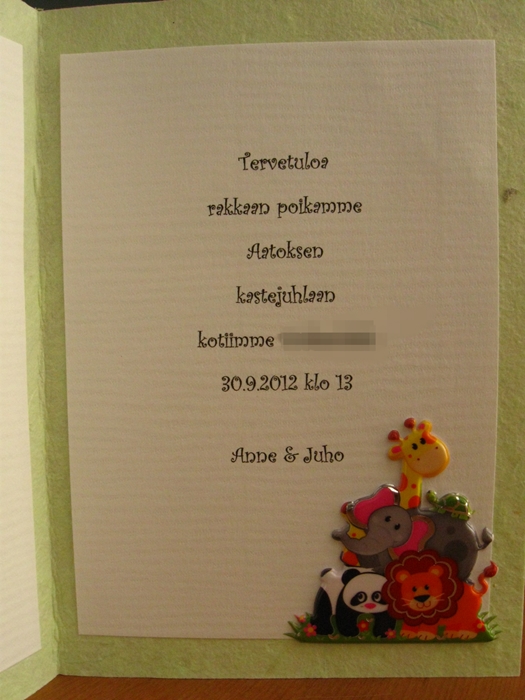 Tervetuloa
rakkaan poikamme
Aatoksen
kastejuhlaan
kotiimme
30.9.2012 klo 13
Anne & Juho